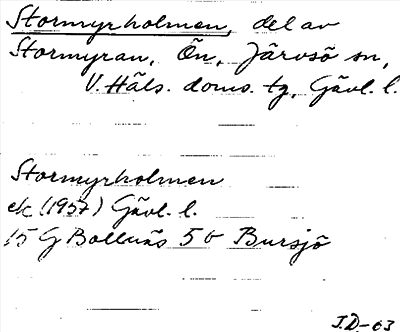 Stormyrholmen, del av
Stormyran, Ön, Järvsö sn,
V. Häls. doms. tg, Gävl. l.
Stormyrholmen
ek (1957) Gävl. l.
15 G Bollnäs 5 b Bursjö
J.D-63